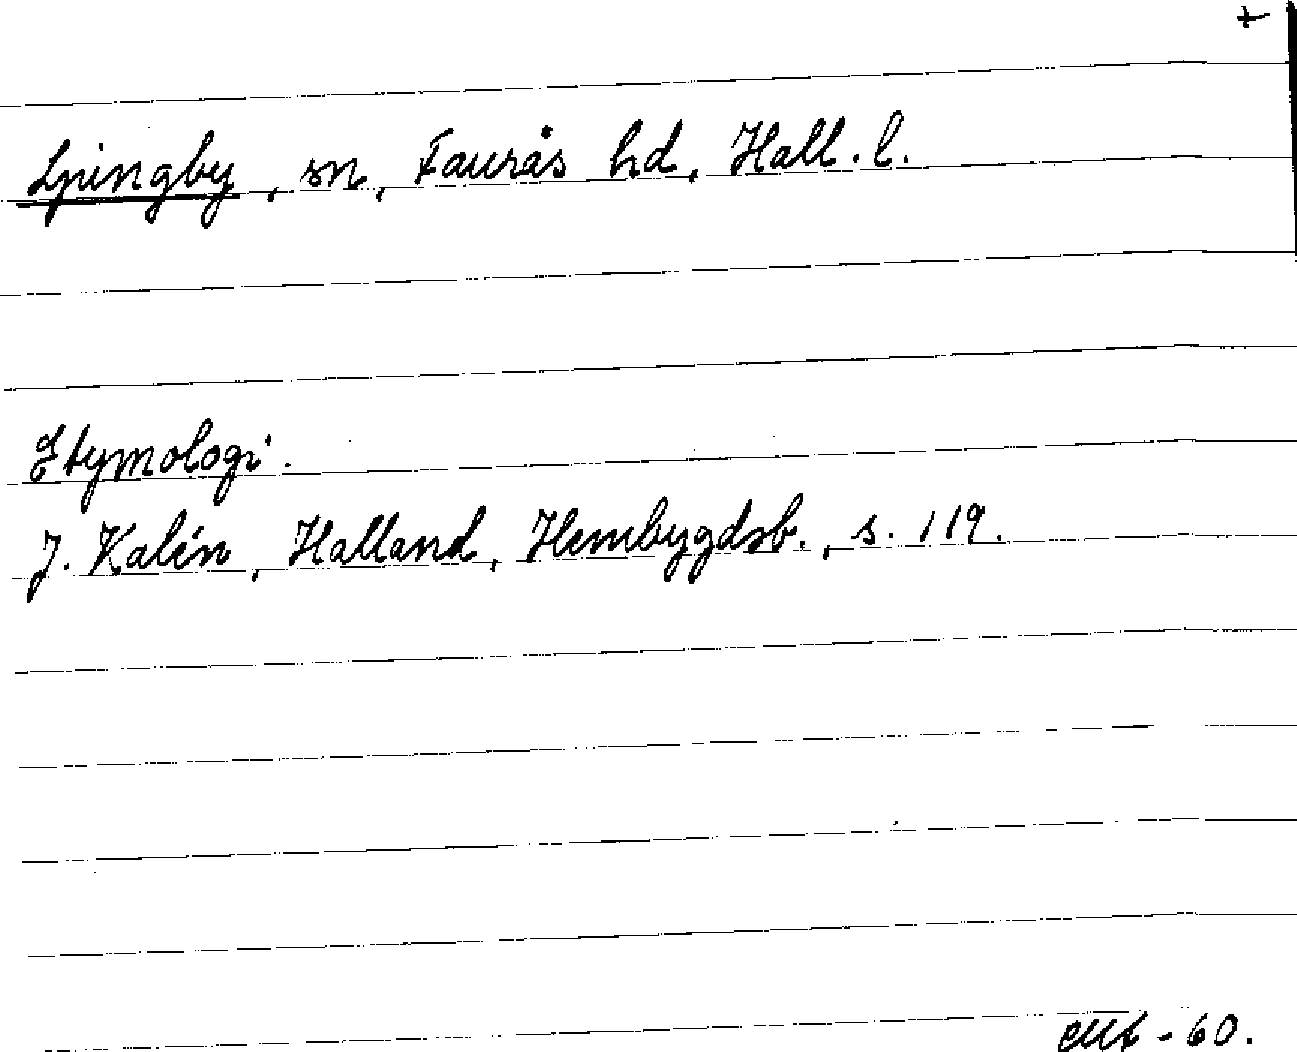 +
Ljungby, sn, Faurås hd, Hall. l.
Etymologi.
J. Kalén, Halland, Hembygdsb., s. 119.
-60.